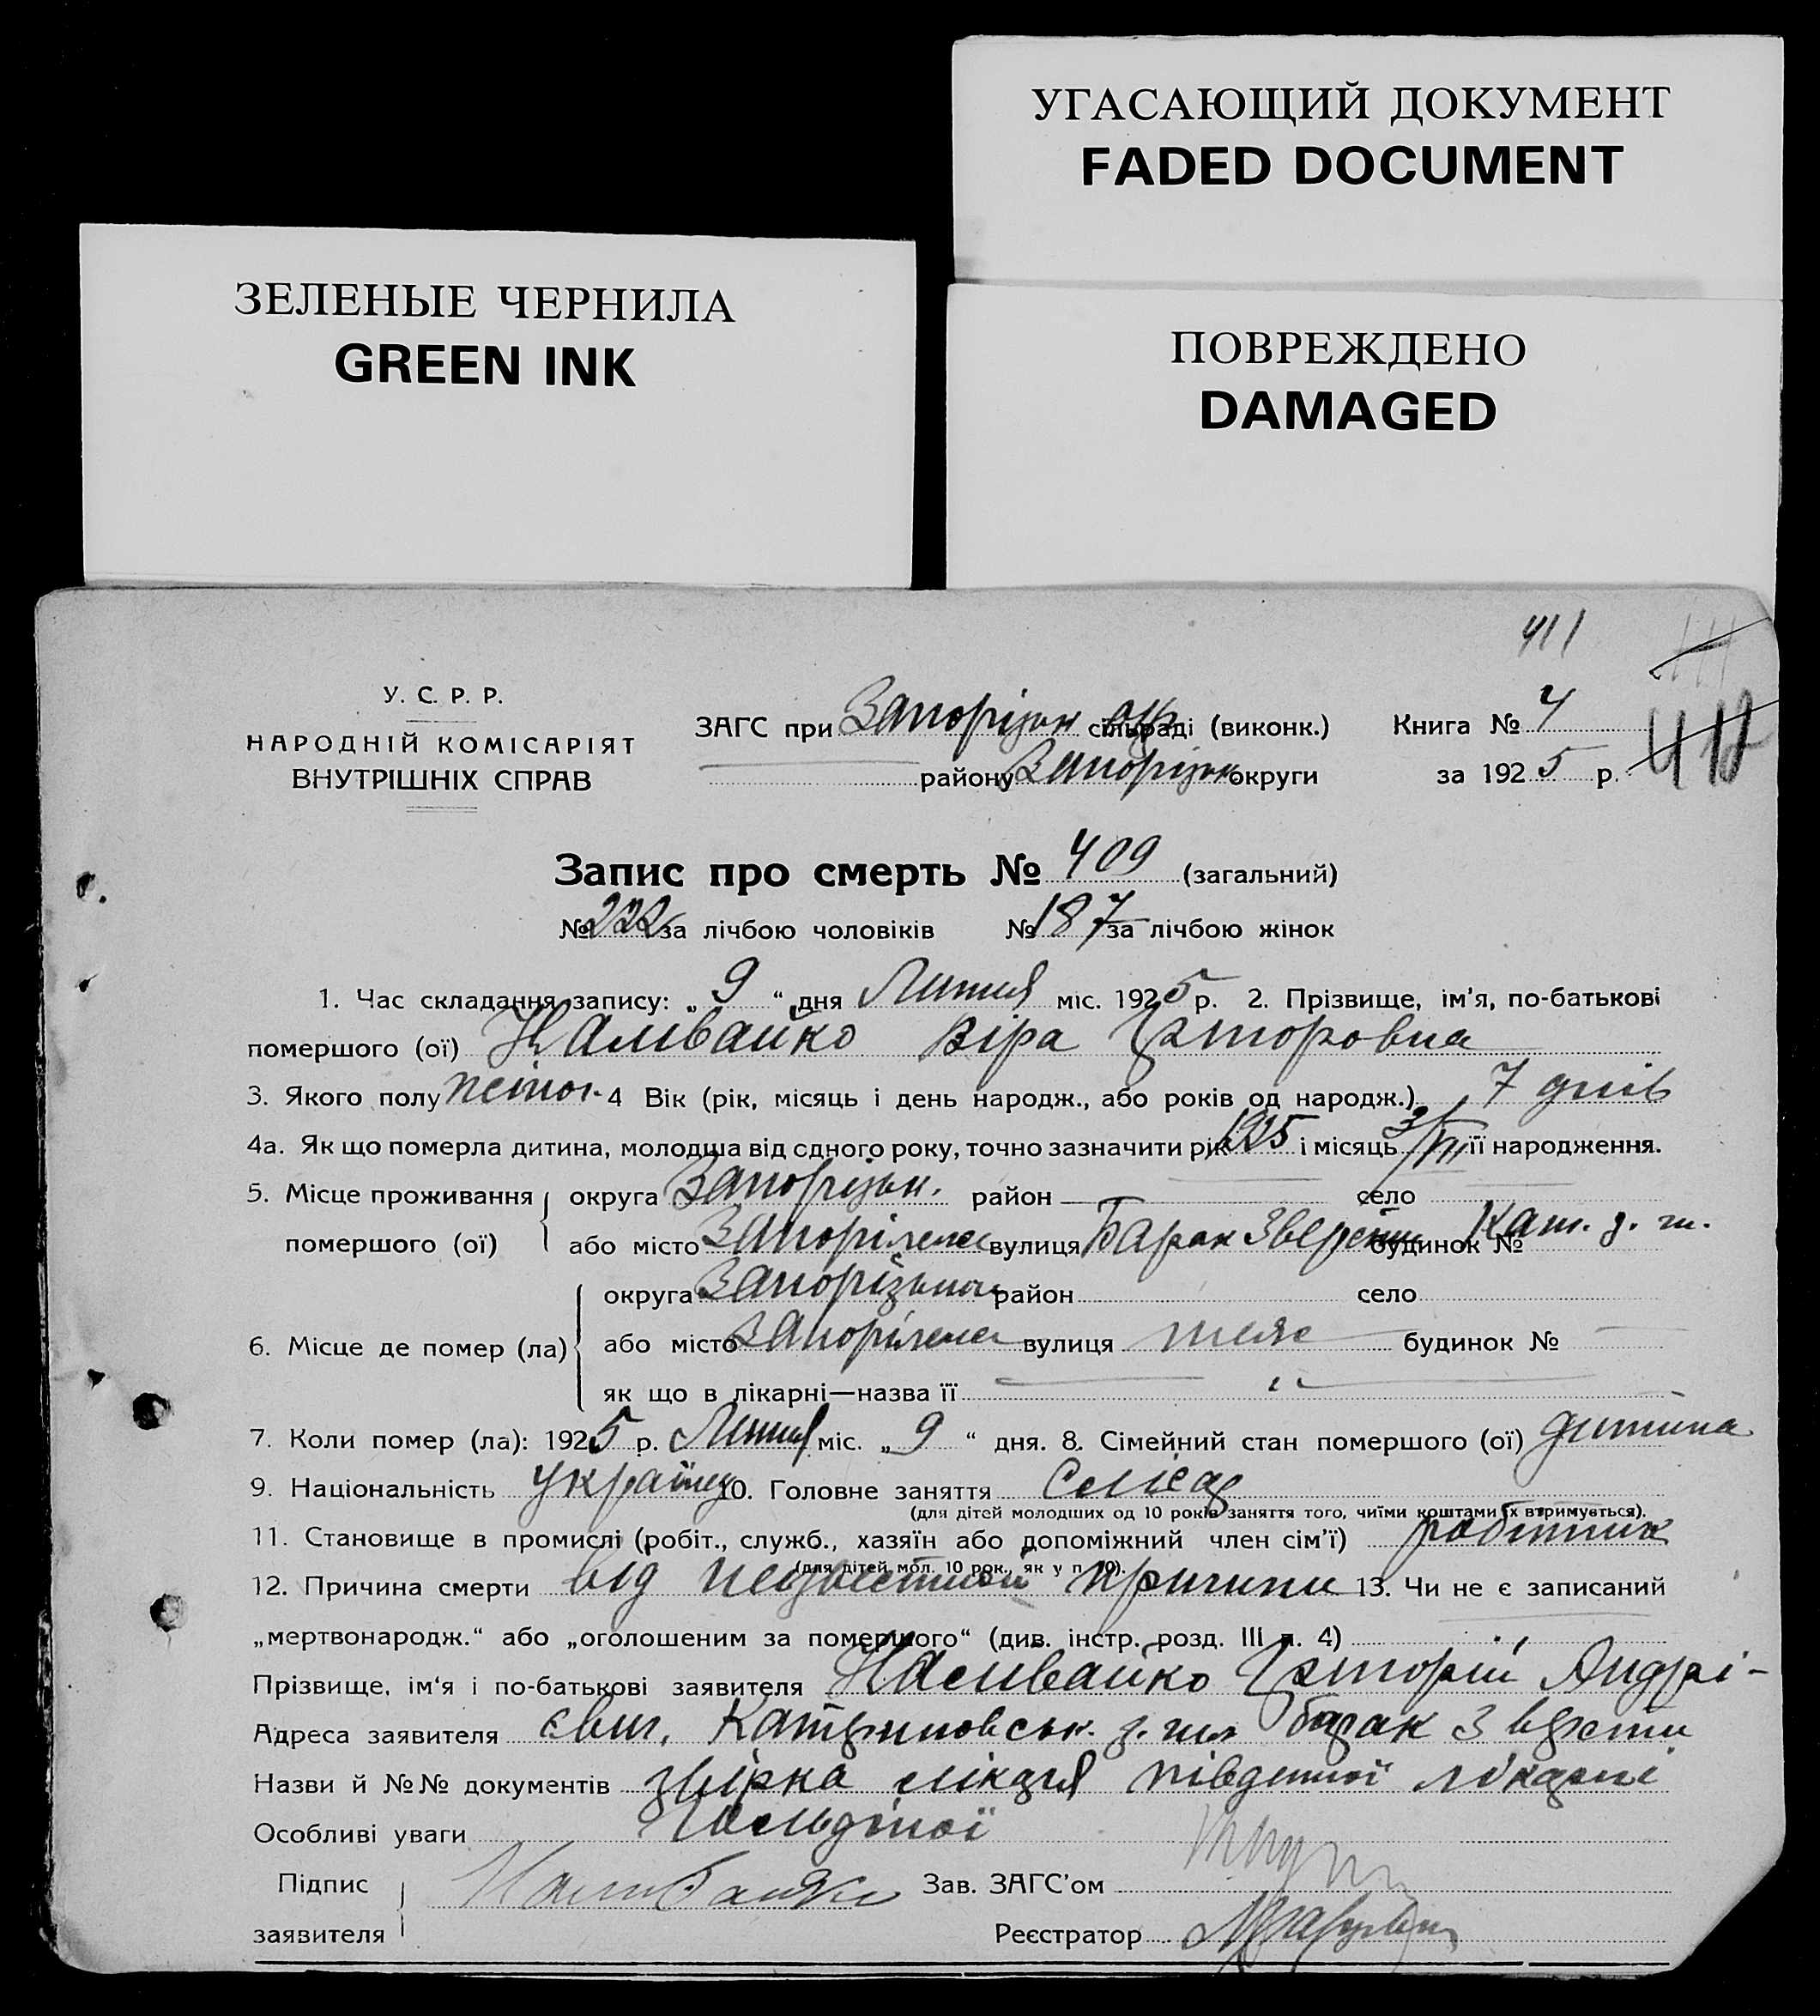 УГАСАЮЩИЙ ДОКУМЕНТ
FADED DOCUMENT
ЗЕЛЕНЫЕ ЧЕРНИЛА
GREEN INK
ПОВРЕЖДЕНО
DAMAGED
411
У. С. Р. Р.
НАРОДНІЙ КОМІСАРІЯТ
ВНУТРІШНІХ СПРАВ
ЗАГС при Запорізьк окр сільраді (виконк.) Книга № 4
412
району Запорізьк округи за 1925 р.
Запис про смерть № 409 (загальний)
№ 222 за лічбою чоловіків № 187 за лічбою жінок
1. Час складання запису: „ 9 “ дня Липня міс. 1925 р. 2. Прізвище, ім’я, по-батькові
помершого (ої) Налівайко Віра Григоровна
3. Якого полу жіноч. 4 Вік (рік, місяць і день народж., або років од народж.) 7 днів
4а. Як що померла дитина, молодша від одного року, точно зазначити рік 1925 і місяць 3/VII її народження.
5. Місце проживання округа Запорізьк. район село
помершого (ої) або місто Запоріжжа вулиця Барак 3 версти будинок № Кат. з. ш.
6. Місце де помер (ла) округа Запорізька район село
або місто Запоріжжа вулиця теж будинок №
як що в лікарні—назва її
7. Коли помер (ла): 1925 р. Липня міс. „ 9 “ дня. 8. Сімейний стан помершого (ої) дитина
9. Національність україн. 10. Головне заняття Слюсар
(для дітей молодших од 10 років заняття того, чиїми коштами їх втримується).
11. Становище в промислі (робіт., служб., хазяїн або допоміжний член сім’ї) робітник
(для дітей мол. 10 рок., як у п. 10).
12. Причина смерти від неизвестной причини 13. Чи не є записаний
„мертвонародж.“ або „оголошеним за померлого“ (див. інстр. розд. III п. 4)
Прізвище, ім‘я і по-батькові заявителя Наливайко Григорій Андрі-
Адреса заявителя євич, Катериновськ. з. ш. барак 3 версти
Назви й №№ документів лікаря південної лікарні
Особливі уваги
Підпис
заявителя Наливайко Зав. ЗАГС’ом
Реєстратор